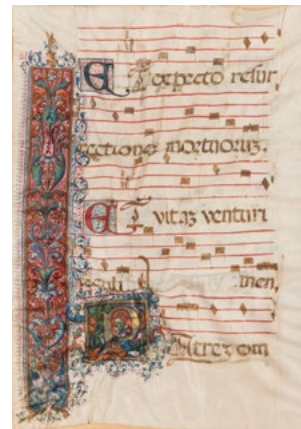 ET expecto resur
rectionem mortuorum.
ET vitam venturi
seculi men,
PAtrem om